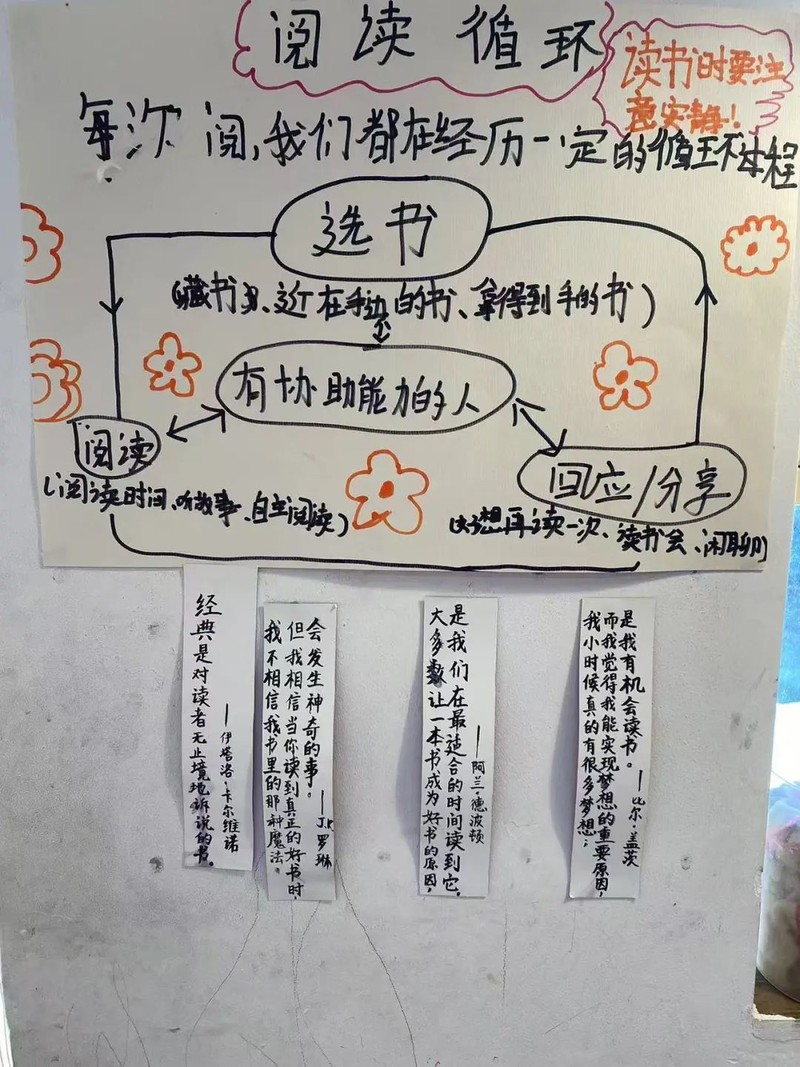 阅读循环
读书时要注
意安静!
每次阅,我们都在经历一定的循环过程
选书
(藏书、近在手边的书、拿得到手的书)
有协助能力的人
阅读
(阅读时间、听故事、自主阅读)
回应/分享
想再读一次、读书会、闲聊)
经典是对读者无止境地诉说的书。
——伊塔洛·卡尔维诺
我不相信我书里的那种魔法。
但我相信当你读到真正的好书时,
会发生神奇的事。
——J.K罗琳
大多数让一本书成为好书的原因,
是我们在最适合的时间读到它。
——阿兰·德波顿
我小时候真的有很多梦想;
而我觉得我能实现梦想的重要原因,
是我有机会读书。
——比尔·盖茨